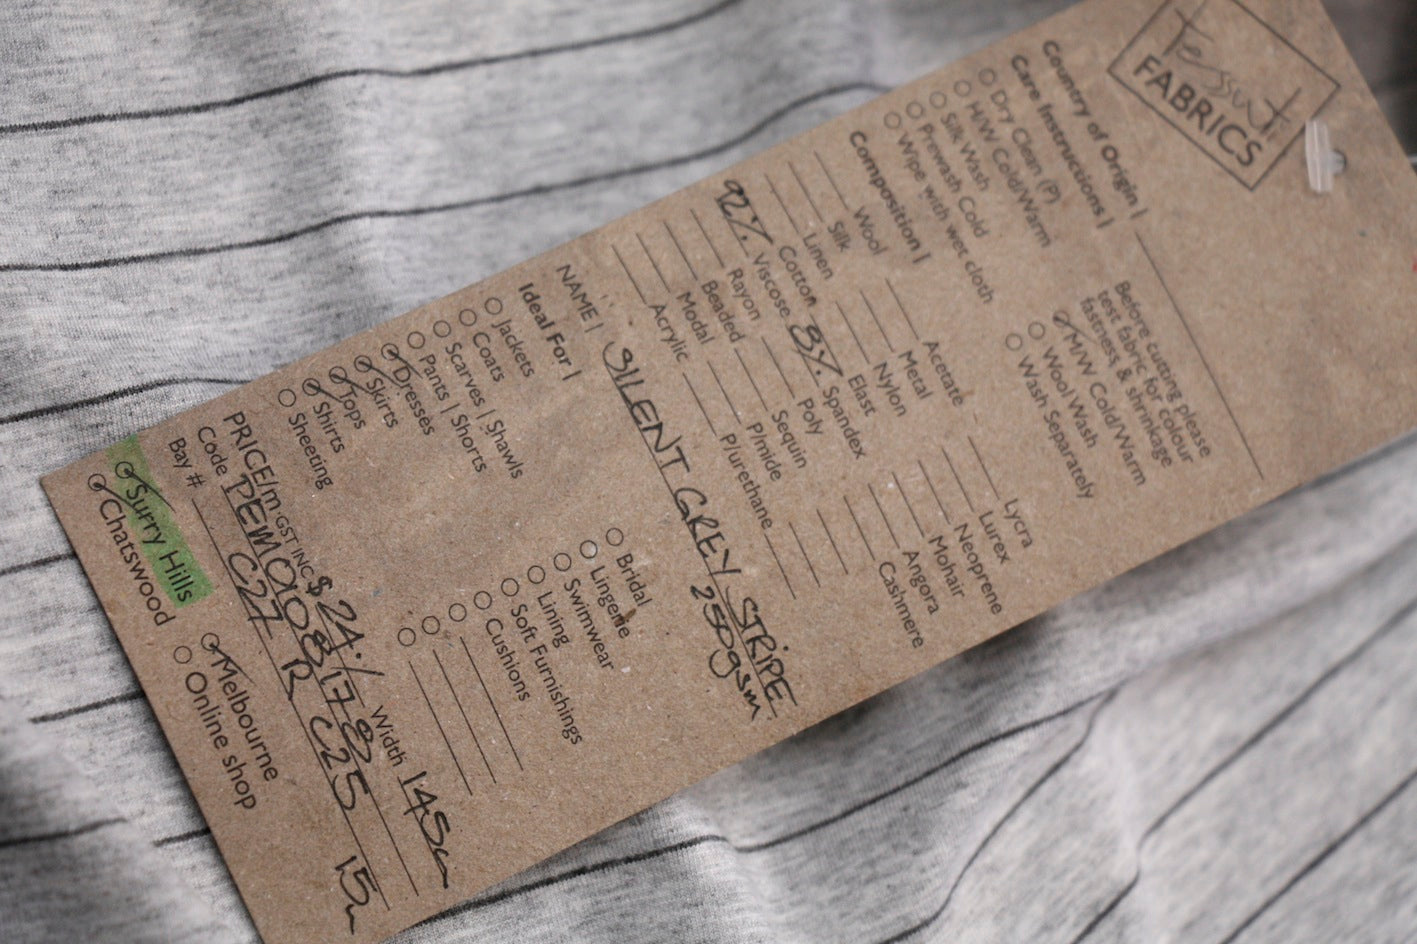 Tessuti
FABRICS
Country of Origin |
Care Instructions |
Dry Clean (P)
H/W Cold/Warm
Silk Wash
Prewash Cold
Wipe with wet cloth
Before cutting please
test fabric for colour
fastness & shrinkage
M/W Cold/Warm
Wool Wash
Wash Separately
Composition |
Wool
Silk
Linen
Cotton
92% Viscose
Rayon
Beaded
Modal
Acrylic
Acetate
Metal
Nylon
Elast
8% Spandex
Poly
Sequin
P/mide
P/urethane
Lycra
Lurex
Neoprene
Mohair
Angora
Cashmere
NAME | SILENT GREY STRIPE
250gsm
Ideal For |
Jackets
Coats
Scarves | Shawls
Pants | Shorts
Dresses
Skirts
Tops
Shirts
Sheeting
Bridal
Lingerie
Swimwear
Lining
Soft Furnishings
Cushions
PRICE/m GST INC $24./ Width 145cm
Code PEWO1081785
Bay # C27 R C25 15m
Surry Hills
Chatswood
Melbourne
Online shop